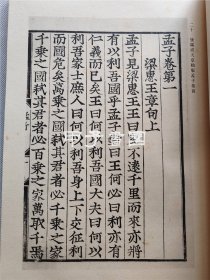 孟子卷第一
梁惠王章句上
孟子見梁惠王王曰叟不遠千里而來亦將
有以利吾國乎孟子對曰王何必曰利亦有
仁義而已矣王曰何以利吾國大夫曰何以
利吾家士庶人曰何以利吾身上下交征利
而國危矣萬乘之國弒其君者必千乘之家
千乘之國弒其君者必百乘之家萬取千焉